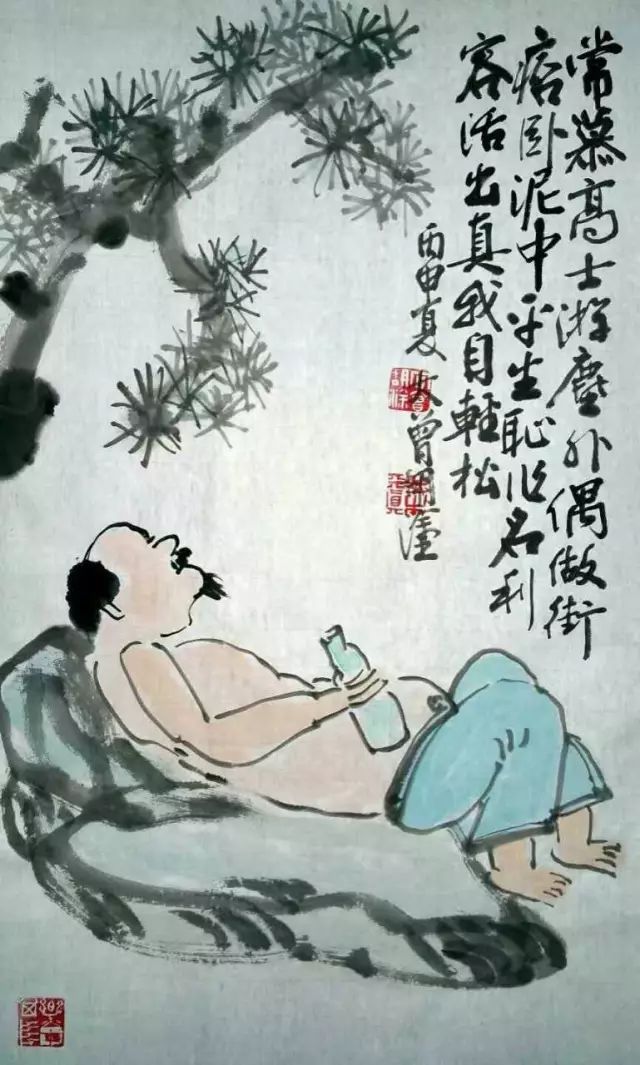 常慕高士游塵外偶做街
痞卧泥中平生恥作名利
客活出真我自輕松
丙申夏 曾